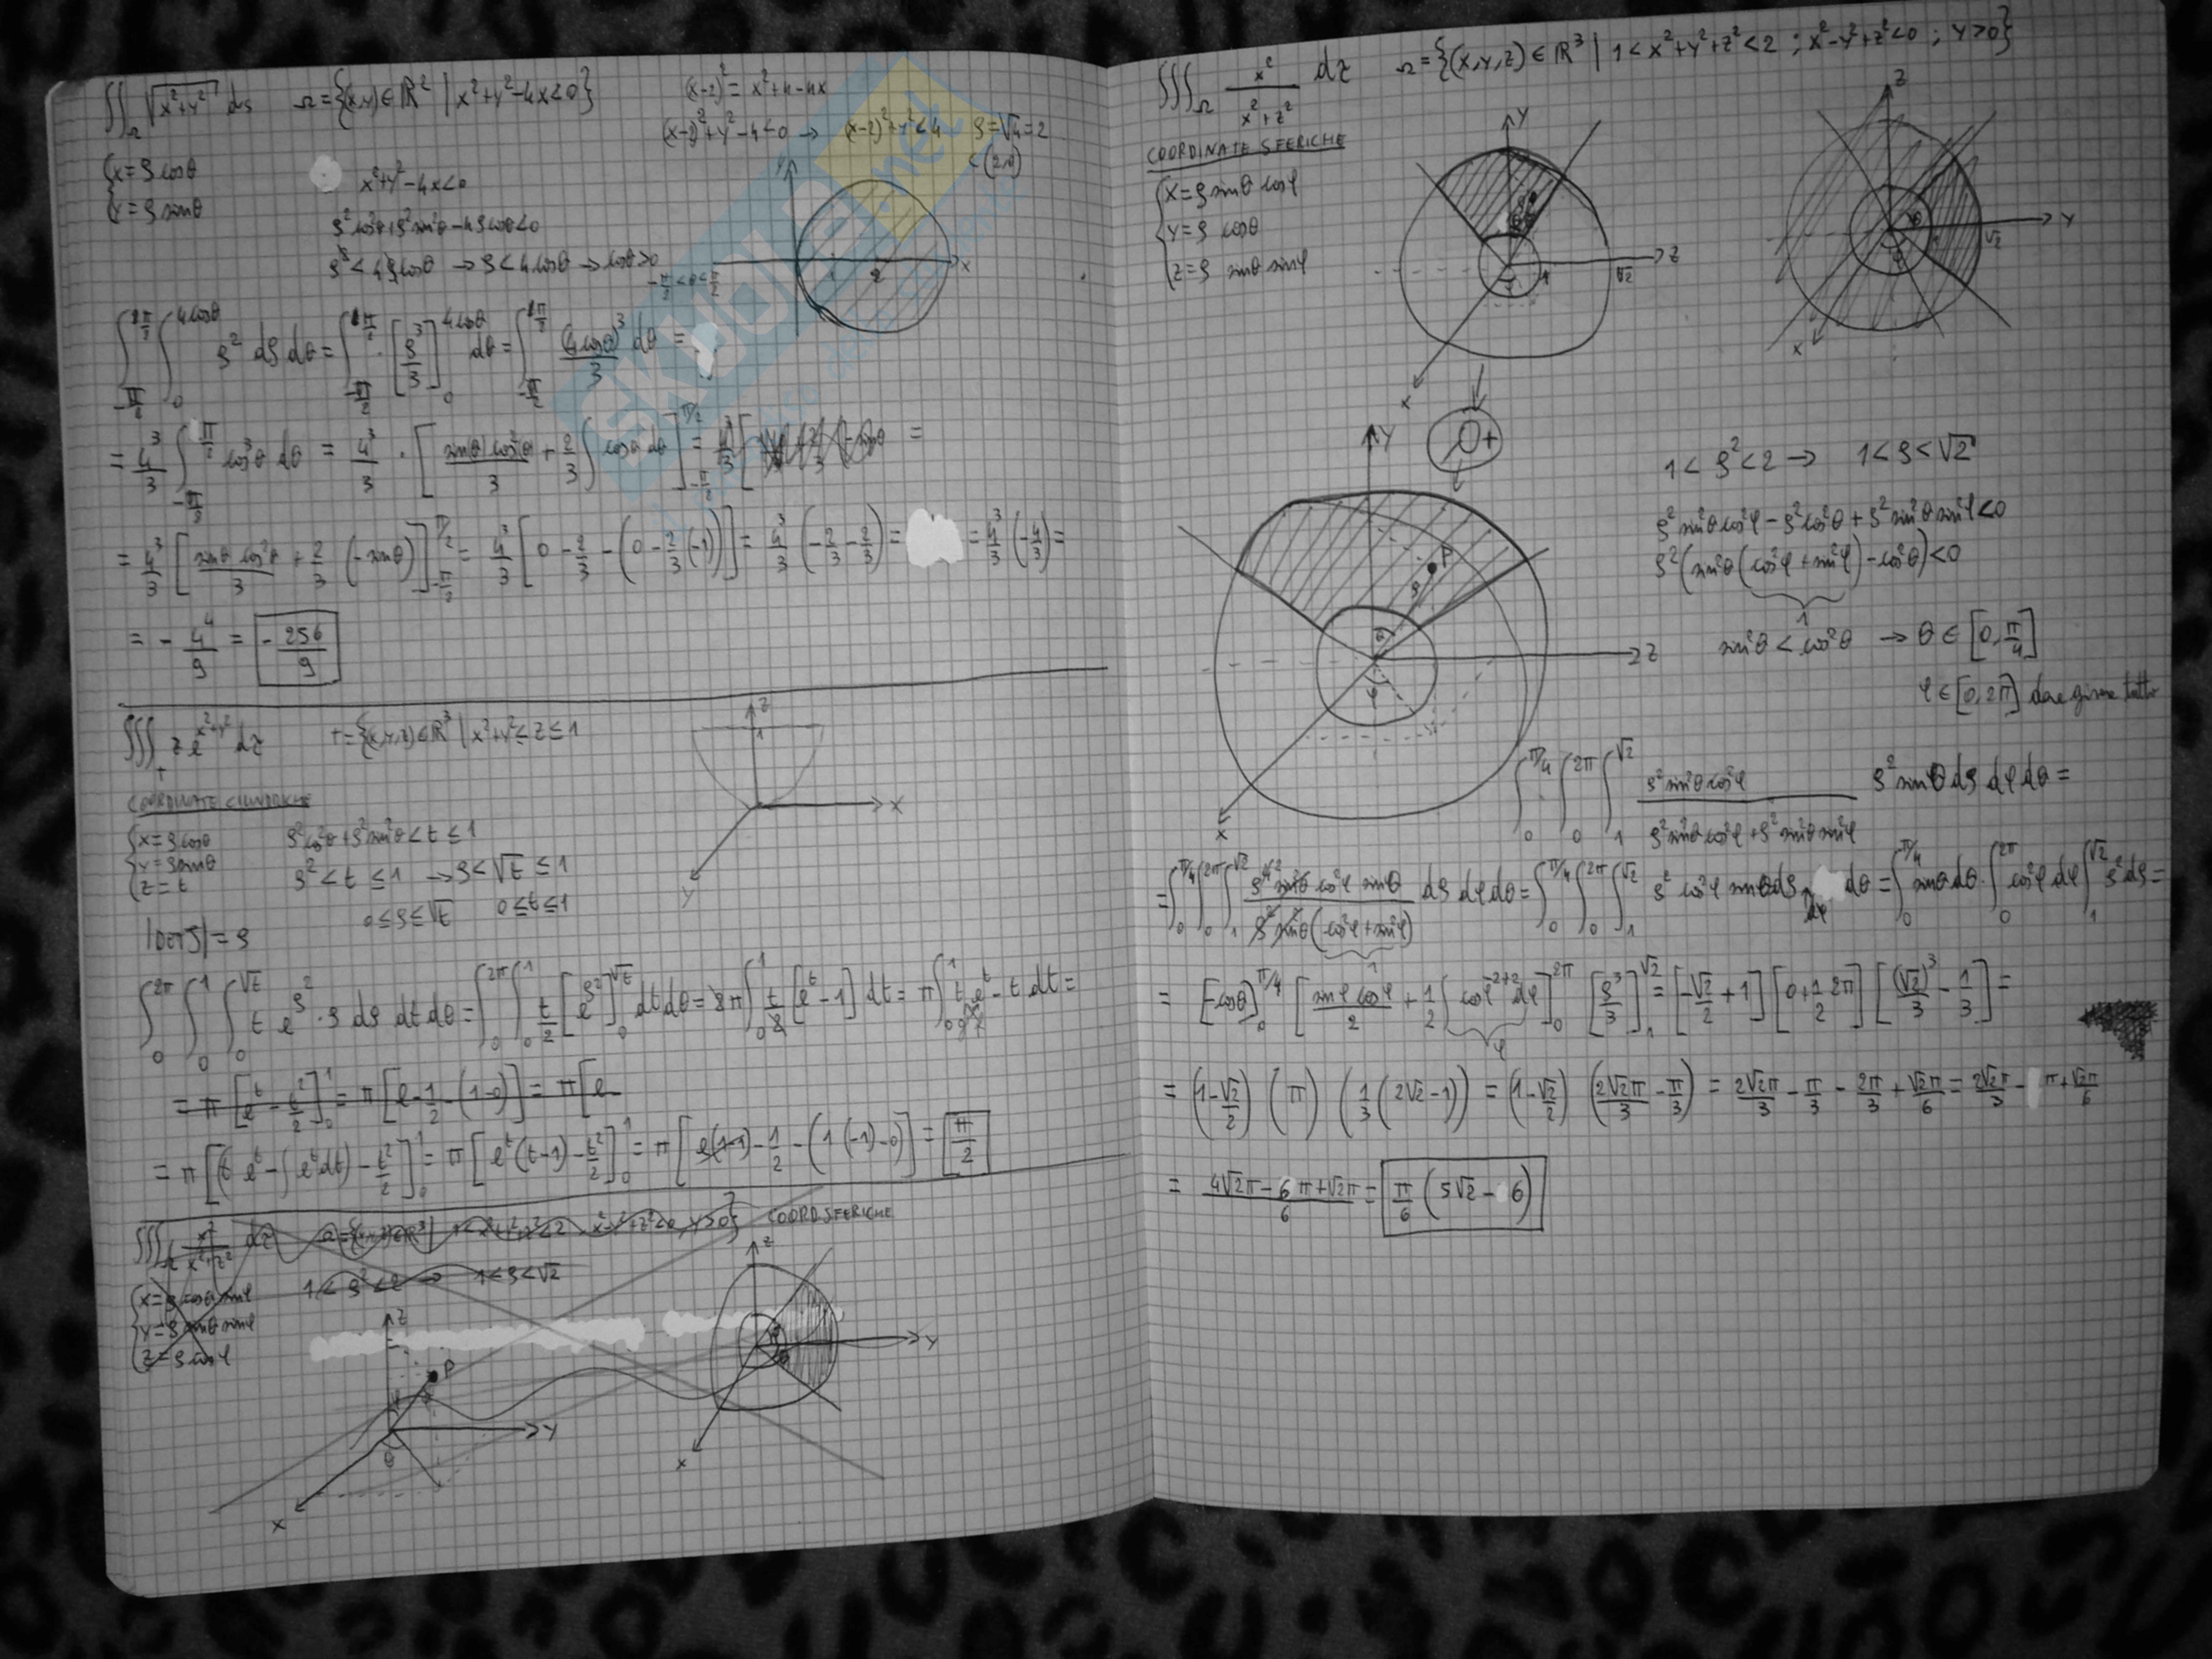 ∬_Ω √(x²+y²) ds   Ω={(x,y)∈ℝ² | x²+y²-4x<0}   (x-2)² = x²+4-4x
(x-2)²+y²-4<0 → (x-2)²+y²<4   ρ=√4=2
C(2,0)
{x=ρcosθ
{y=ρsinθ
x²+y²-4x<0
ρ²cos²θ+ρ²sin²θ-4ρcosθ<0
ρ²<4ρcosθ → ρ<4cosθ → cosθ>0
-π/2<θ<π/2
y
1 2 x
∫_{-π/2}^{π/2} ∫_0^{4cosθ} ρ² dρ dθ = ∫_{-π/2}^{π/2} · [ρ³/3]_0^{4cosθ} dθ = ∫_{-π/2}^{π/2} (4cosθ)³/3 dθ =
= 4³/3 ∫_{-π/2}^{π/2} cos³θ dθ = 4³/3 · [sinθ cos²θ/3 + 2/3 ∫cosθ dθ]_{-π/2}^{π/2} = 4³/3 [ -sinθ =
= 4³/3 [sinθ cos²θ/3 + 2/3 (-sinθ)]_{-π/2}^{π/2} = 4³/3 [0 - 2/3 - (0 - 2/3 (-1))] = 4³/3 (-2/3 - 2/3) = = 4³/3 (-4/3) =
= - 4⁴/9 = -256/9
∭_T z e^{x²+y²} dz   T={(x,y,z)∈ℝ³ | x²+y²≤z≤1
z
1
x
y
COORDINATE CILINDRICHE
{x=ρcosθ
{y=ρsinθ
{z=t
ρ²cos²θ+ρ²sin²θ<t≤1
ρ²<t≤1 → ρ<√t≤1
0≤ρ≤√t   0≤t≤1
|DET J| = ρ
∫_0^{2π} ∫_0^1 ∫_0^{√t} t e^{ρ²} · ρ dρ dt dθ = ∫_0^{2π} ∫_0^1 t/2 [e^{ρ²}]_0^{√t} dt dθ = 2π ∫_0^1 t/2 [e^t-1] dt = π ∫_0^1 t e^t - t dt =
= π [e^t - t²/2]_0^1 = π [e - 1/2 - (1-0)] = π [e
= π [(t e^t - ∫e^t dt) - t²/2]_0^1 = π [e^t(t-1) - t²/2]_0^1 = π [e(1-1) - 1/2 - (1(-1)-0)] = π/2
∭_Ω x²/(x²+z²) dz   Ω={(x,y,z)∈ℝ³ | 1<x²+y²+z²<2, x²-y²+z²<0, y>0}   COORD SFERICHE
{x=ρcosθ sinφ
{y=ρsinθ sinφ
{z=ρcosφ
1<ρ²<2 → 1<ρ<√2
z
P
y
θ
x
z
y
x
∭_Ω x²/(x²+z²) dz   Ω={(x,y,z)∈ℝ³ | 1<x²+y²+z²<2 ; x²-y²+z²<0 ; y>0}
COORDINATE SFERICHE
{x=ρ sinθ cosφ
{y=ρ cosθ
{z=ρ sinθ sinφ
y
1 √2 z
x
z
1 √2 y
x
+
y
P
ρ
z
φ
x
1<ρ²<2 → 1<ρ<√2
ρ²sin²θcos²φ - ρ²cos²θ + ρ²sin²θsin²φ<0
ρ²(sin²θ(cos²φ+sin²φ)-cos²θ)<0
1
sin²θ<cos²θ → θ∈[0,π/4]
φ∈[0,2π] deve girare tutto
∫_0^{π/4} ∫_0^{2π} ∫_1^{√2} ρ²sin²θcos²φ/(ρ²sin²θcos²φ+ρ²sin²θsin²φ) ρ²sinθ dρ dφ dθ =
= ∫_0^{π/4} ∫_0^{2π} ∫_1^{√2} ρ⁴sin²θcos²φ sinθ/(ρ²sin²θ(cos²φ+sin²φ)) dρ dφ dθ = ∫_0^{π/4} ∫_0^{2π} ∫_1^{√2} ρ²cos²φ sinθ dρ dφ dθ = ∫_0^{π/4} sinθ dθ · ∫_0^{2π} cos²φ dφ ∫_1^{√2} ρ² dρ =
1
= [-cosθ]_0^{π/4} [sinφ cosφ/2 + 1/2 ∫cosφ^{-2+2} dφ]_0^{2π} [ρ³/3]_1^{√2} = [-√2/2+1] [0+1/2 2π] [(√2)³/3 - 1/3] =
φ
= (1-√2/2) (π) (1/3 (2√2-1)) = (1-√2/2) (2√2π/3 - π/3) = 2√2π/3 - π/3 - 2π/3 + √2π/6 = 2√2π/3 - π + √2π/6
= (4√2π - 6π + √2π)/6 = π/6 (5√2 - 6)
SKUOLA.net